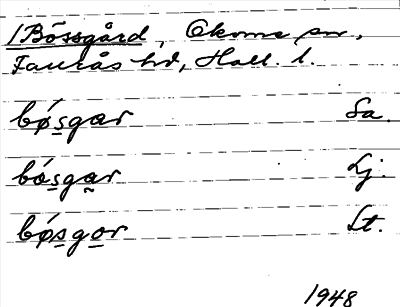 /Bössgård, Okome sn.,
Faurås hd, Hall. l.
bǿs̲gar Sa.
bǿs̲gar Lj.
bǿs̲gor St.
1948